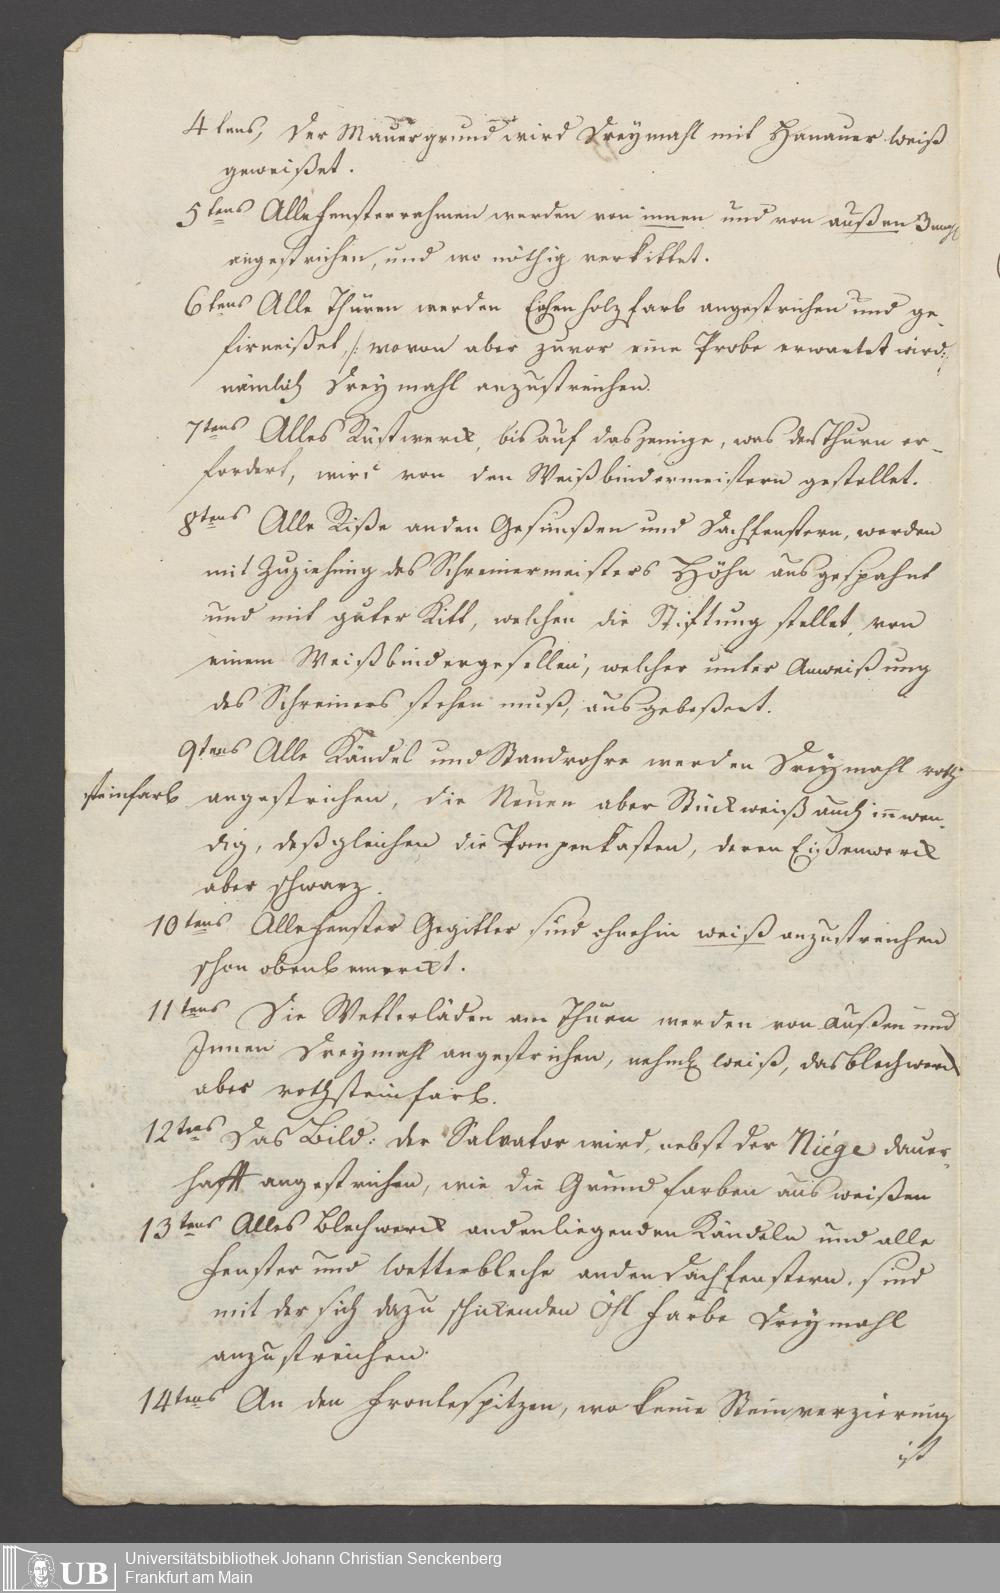 4tens, Der Mauergrund wird Dreymahl mit Hanauer weiß
geweißet.
5tens Alle Fensterrahmen werden von innen und von außen 3 mahl
angestrichen, und wo nöthig verkittet.
6tens Alle Thüren werden Eichenholzfarb angestrichen und ge-
firneißet, /: wovon aber zuvor eine Probe erwartet wird :/
nämlich Dreymahl anzustreichen.
7tens Alles Rüstwerck, bis auf dasjenige, was der Thurn er-
fordert, wird von den Weißbindermeistern gestellet.
8tens Alle Riße an den Gesimßen und Dachfenstern, werden
mit Zuziehung des Schreinermeisters Höhn ausgespahnt
und mit guter Kitt, welchen die Stiftung stellet, von
einem Weißbindergesellen, welcher unter Anweißung
des Schreiners stehen muß, ausgebeßert.
9tens Alle Kändel und Standrohre werden Dreymahl roth
steinfarb angestrichen, die Neuen aber Stückweiß auch inwen-
dig, deßgleichen die Pompenkasten, deren Eißenwerck
aber schwarz.
10tens Alle Fenster Gegitter sind ohnehin weiß anzustreichen
schon oben bemerckt.
11tens Die Wetterläden am Thurn werden von Außen und
Innen Dreymahl angestrichen, nehml. weiß, das blechwerck
aber rothsteinfarb.
12tens Das Bild: der Salvator wird, nebst der Niége dauer-
hafft angestrichen, wie die Grundfarben ausweißen
13tens Alles Blechwerck an den liegenden Kändeln und alle
Fenster und Wetterbleche an den Dachfenstern, sind
mit der sich dazu schickenden Öhl Farbe Dreymahl
anzustreichen.
14tens An den Frontespitzen, wo keine Steinverzierung
ist
UB Universitätsbibliothek Johann Christian Senckenberg
Frankfurt am Main